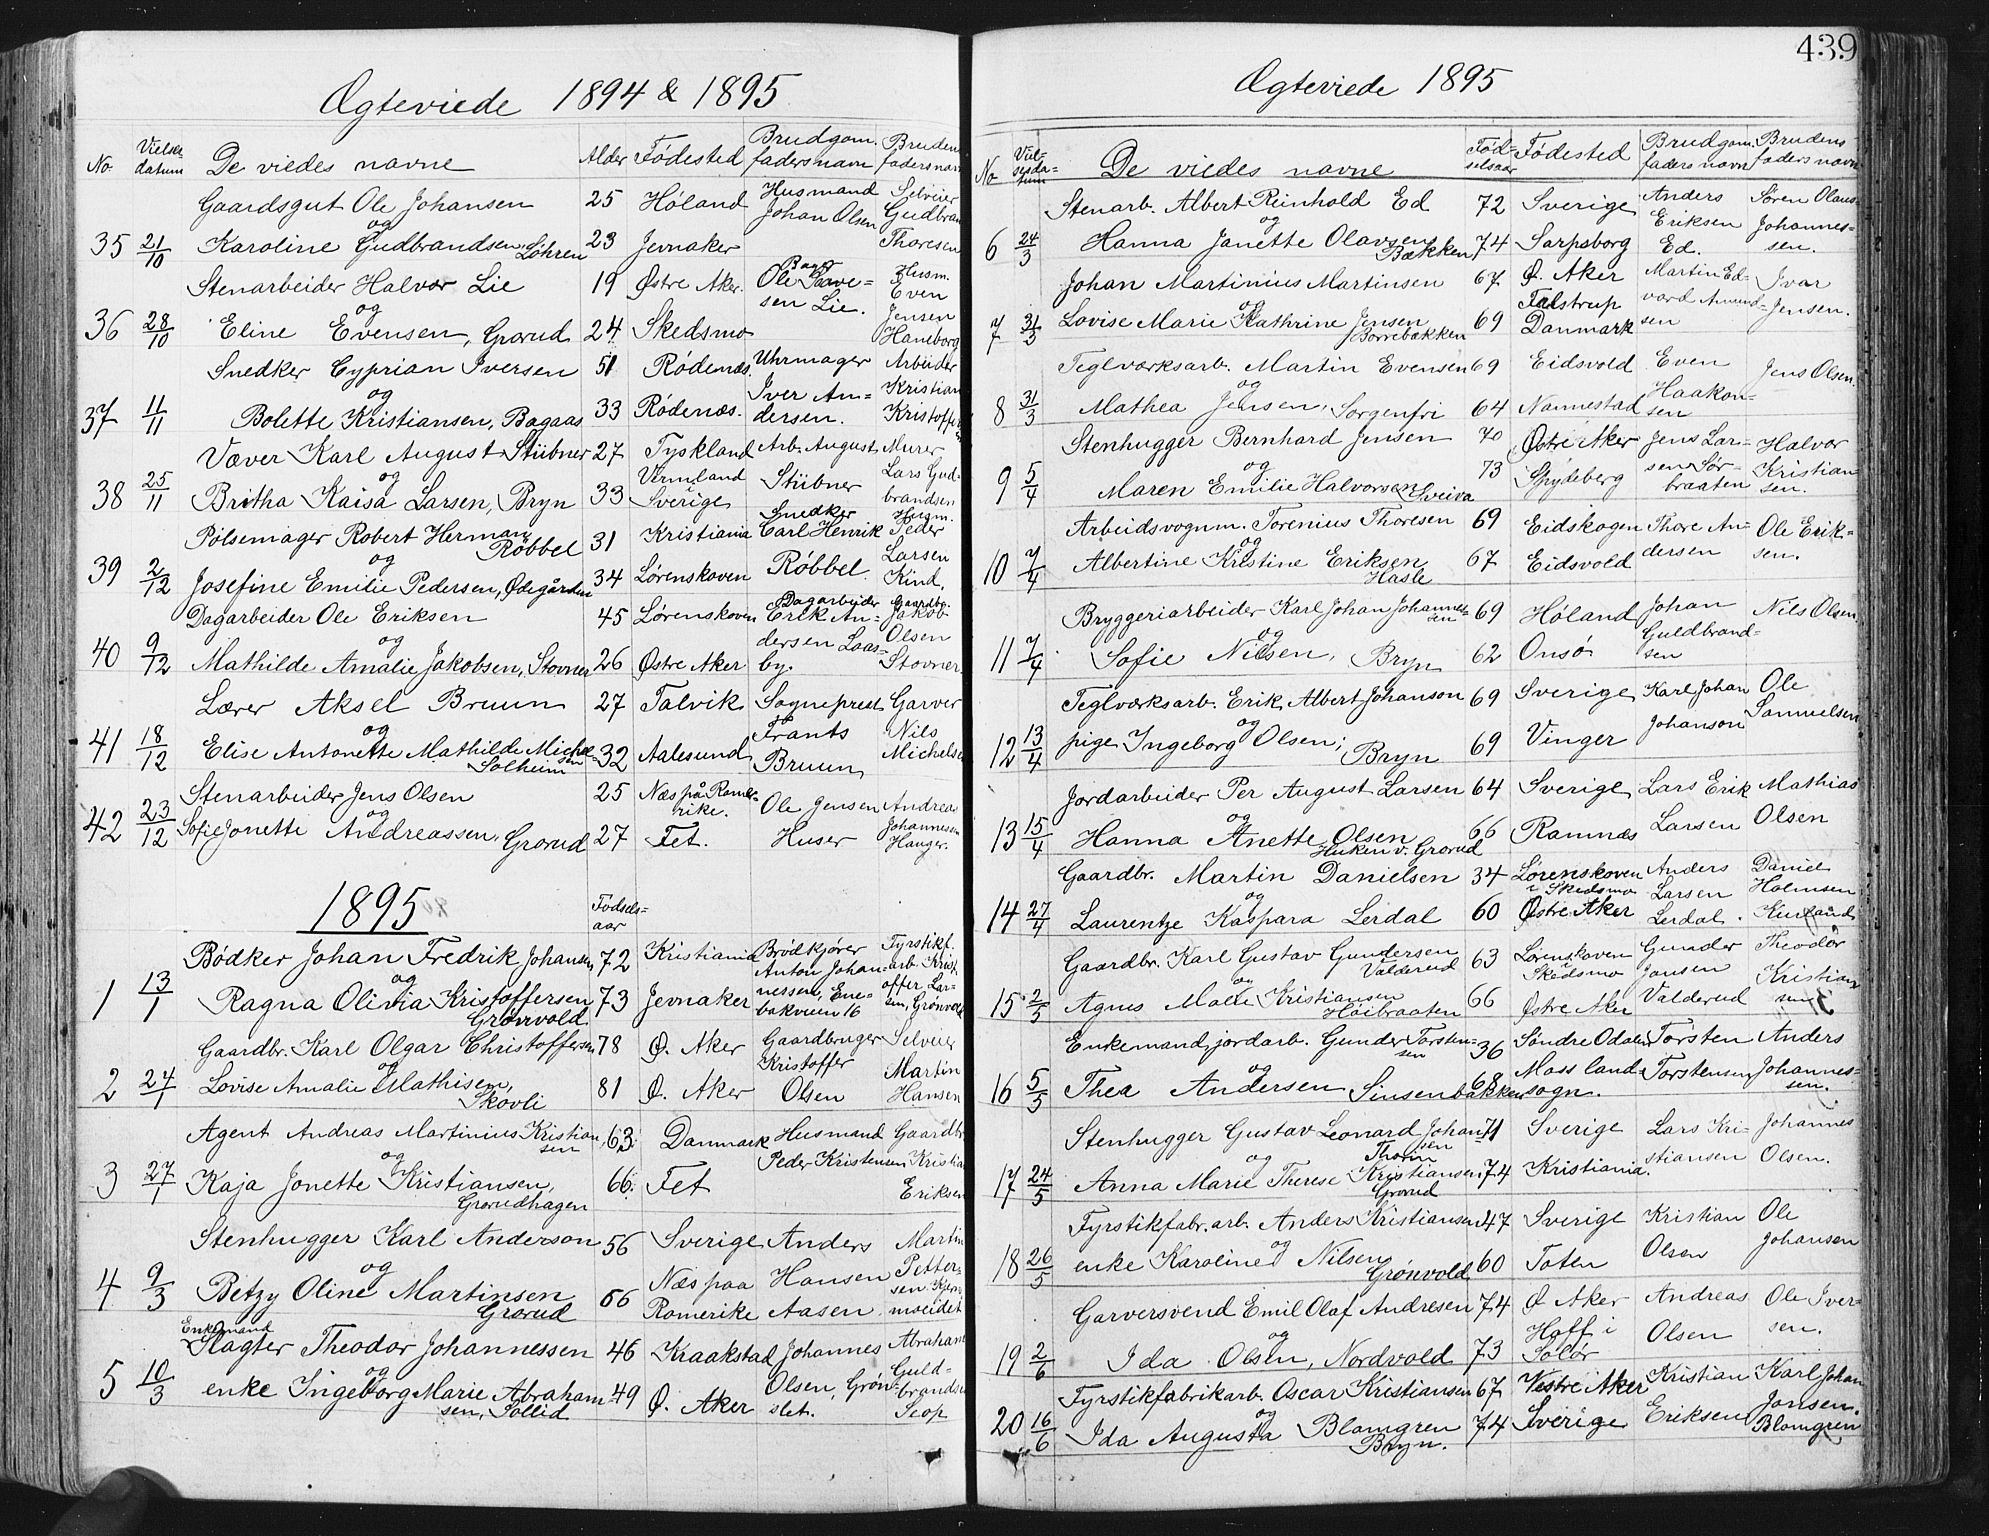 Ægteviede 1894 & 1895
No Vielsesdatum De viedes navne Alder Fødested Brudgom. fadersnavn Brudens fadersnavn
Gaardsgut Ole Johansen 25 Høland Husmand Johan Olsen Selveier Gudbran
og
35 21/10 Karoline Gudbrandsen, Løhren 23 Jevnaker Thoresen
Stenarbeider Halvor Lie 19 Østre Aker. Bager Ole Paavesen Lie. Husm. Even
og
36 28/10 Eline Evensen, Grorud 24 Skedsmo Jensen Haneborg
Snedker Cyprian Iversen 51 Rødenæs. Uhrmager Iver Andersen. Arbeider
og
37 11/11 Bolette Kristiansen, Bagaas 33 Rødenæs. Kristian Kristoffer
Væver Karl August Stübner 27 Tyskland Arb. August Stübner Murer
og
38 25/11 Britha Kaisa Larsen, Bryn 33 Vermland Sverige Lars Gudbrandsen
Pølsemager Robert Herman Röbbel 31 Kristiania Snedker Carl Henrik Röbbel Husm. Peder
og
39 2/12 Josefine Emilie Pedersen, Ødegården 34 Lørenskoven Larsen Kind.
Dagarbeider Ole Eriksen 45 Lørenskoven Dagarbeider Erik Andersen Laasby. Gaardbr. Jakob
og
40 9/12 Mathilde Amalie Jakobsen, Stovner 26 Østre Aker Olsen Stovner
Lærer Aksel Bruun 27 Talvik Sogneprest Frants Bruun Garver
og
41 18/12 Elise Antonette Mathilde Michelsen Solheim 32 Aalesund Nils Michelse
Stenarbeider Jens Olsen 25 Næs på Romerike. Ole Jensen Huser Andreas
og
42 23/12 Sofie Jonette Andreassen, Grorud 27 Fet. Johannesen Hauger.
1895 Fødselsaar
Bødker Johan Fredrik Johansen 72 Kristiania Brödkjører Anton Johannessen, Enebakveien 16 Fyrstikf. arb. Krist
og
1 13/1 Ragna Olivia Kristoffersen Grønvold 73 Jevnaker offer Larsen, Grønvold
Gaardbr. Karl Olgar Christoffersen 78 Ø. Aker Gaardbruger Kristoffer Olsen Selveier
og
2 24/1 Lovise Amalie Mathisen, Skovli 81 Ø. Aker Martin Hansen
Agent Andreas Martinius Kristiansen 63 Danmark Husmand Peder Kristensen Gaardbr
og
3 27/1 Kaja Jonette Kristiansen, Grorudhagen 66. Fet Kristia Eriksen
Stenhugger Karl Anderson 56 Sverige Anders Hansen Aasen Martin
og
4 9/3 Betzy Oline Martinsen Grorud 66 Næs paa Romerike Pettersen
Enkemand
Slagter Theodor Johannessen 46 Kraakstad Johannes Olsen, Grønslet. Abraham
og
5 10/3 enke Ingeborg Marie Abrahamsen, Sollid 49 Ø. Aker Guldbrandse
439
Ægteviede 1895
No Vielsesdatum De viedes navne Fødselsaar Fødested Brudgom. faders navn Brudens faders navn
Stenarb. Albert Reinhold Ed 72 Sverige Anders Eriksen Ed. Søren Olaus
og
6 24/3 Hanna Janette Olavsen Bækken 74 Sarpsborg Johannessen.
Johan Martinius Martinsen 67 Ø. Aker Martin Edvard Amundsen Ivar Jensen.
og
7 31/3 Lovise Marie Kathrine Jensen Borrebakken 69 Falstrup Danmark
Teglværksarb. Martin Evensen 69 Eidsvold Even Haakonsen Jens Olsen.
og
8 31/3 Mathea Jensen, Sorgenfri 64 Nannestad
Stenhugger Bernhard Jensen 70 Østre Aker Jens Larsen Sørbraaten Halvor Kristiansen.
og
9 5/4 Maren Emilie Halvorsen Sveiva 73 Spydeberg
Arbeidsvognm. Torenius Thoresen 69 Eidskogen Thore Andersen Ole Eriksen.
og
10 7/4 Albertine Kristine Eriksen Hasle 67 Eidsvold
Bryggeriarbeider Karl Johan Johannessen 69 Høland Johan Guldbrandsen Nils Olsen
og
11 7/4 Sofie Nilsen, Bryn 62 Onsø
Teglværksarb. Erik Albert Johanson 69 Sverige Karl Johan Johanson Ole Samuelsen
og
12 13/4 pige Ingeborg Olsen; Bryn 69 Vinger
Jordarbeider Per August Larsen 64 Sverige Lars Erik Larsen Mathias Olsen
og
13 15/4 Hanna Anette Olsen Huken v. Grorud 66 Ramnæs
Gaardbr. Martin Danielsen 34 Lørenskoven i Skedsmo Anders Larsen Lerdal. Daniel Holmsen
og
14 27/4 Laurentze Kaspara Lerdal 60 Østre Aker
Gaardbr. Karl Gustav Gundersen Valderud 63 Lørenskoven i Skedsmo Gunder Jansen Valderud Theodor Kristiansen
og
15 2/5 Agnes Kristiansen Høibraaten 66 Østre Aker
Enkemand, jordarb. Gunder Torstensen 36 Søndre Odalen Torsten Torstensen Anders Johannessen.
og
16 5/5 Thea Andersen Sinsenbakken 68 Moss landsogn.
Stenhugger Gustav Leonard Johansen Thorin 71 Sverige Lars Kristiansen Johannes Olsen.
og
17 24/5 Anna Marie Therese Kristiansen Grorud 74 Kristiania.
Fyrstikfabr. arb. Anders Kristiansen 47 Sverige Kristian Olsen Ole Johansen
og
18 26/5 enke Karoline Nilsen Grønvold 60 Toten
Garversvend Emil Olaf Andresen 74 Ø Aker Andreas Olsen Ole Iversen.
og
19 2/6 Ida Olsen, Nordvold 73 Hoff i Solør
Fyrstikfabrikarb. Oscar Kristiansen 67 Vestre Aker Kristian Eriksen Karl Johan Jonsen.
og
20 16/6 Ida Augusta Blomgren Bryn. 74 Sverige Blomgren